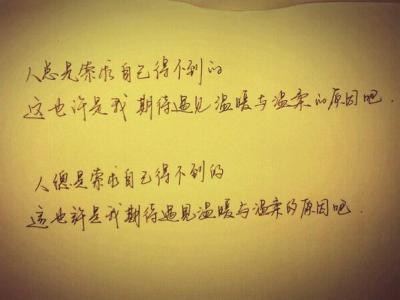 人总是索求自己得不到的
这也许是我期待遇见温暖与温柔的原因吧.
人總是索求自己得不到的
這也許是我期待遇见温暖与温柔的原因吧.